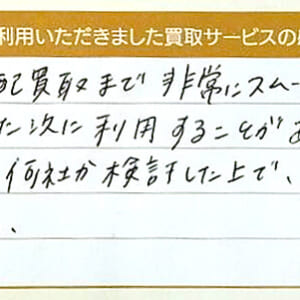 利用いただきました買取サービスの
配買取まで 非常にスムー
た次に利用することがあ
何社か検討した上で、
、